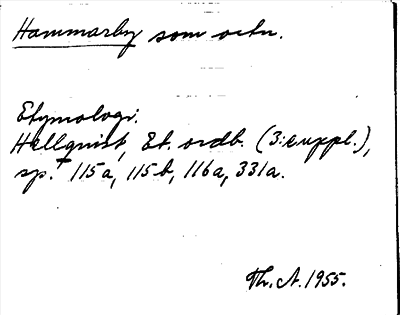 Hammarby som ortn.
Etymologi.
Hellquist, Et. ordb. (3:e uppl.),
sp. 115a, 115b, 116a, 331a.
Th. A. 1955.